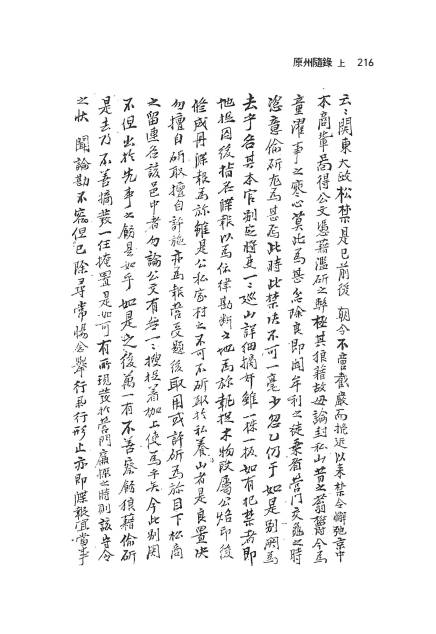 原州隨錄 上 216
云云關東大政松禁是已前後 朝令不啻截嚴而挽近以來禁令懈弛京中
本商輩啚得公文憑藉濫斫之弊極其狼藉故毋論封私山昔之蓊鬱今爲
童濯事之寒心莫此爲甚忿除良卽聞牟利之徒乘着營門交龜之時
恣意偸斫尤爲甚焉此時此禁法不可一毫少忽乙仍于如是別關爲
去乎各其本官別定將吏一一巡山詳細摘奸雖一株一拔如有犯禁者卽
地捉囚後指名牒報以爲依律勘斷之地爲旀執捉木物段屬公烙印後
修成冊牒報爲旀雖是公私家材之不可不斫取於私養山者是良置決
勿擅自斫取擅自許施亦爲報營受題後取用或許斫爲旀目下松商
之留連各該邑中者勿論公文有無一一搜括着枷上使爲乎矣今此別關
不但出於先事之飭是如乎如是之後萬一有不善察飭狼藉偸斫
是去乃不善摘發一任掩置是如可有所現發於營門廉探之時則該守令
之快 聞論勘不容但已除尋常惕念擧行亂行形止亦卽牒報宜當事